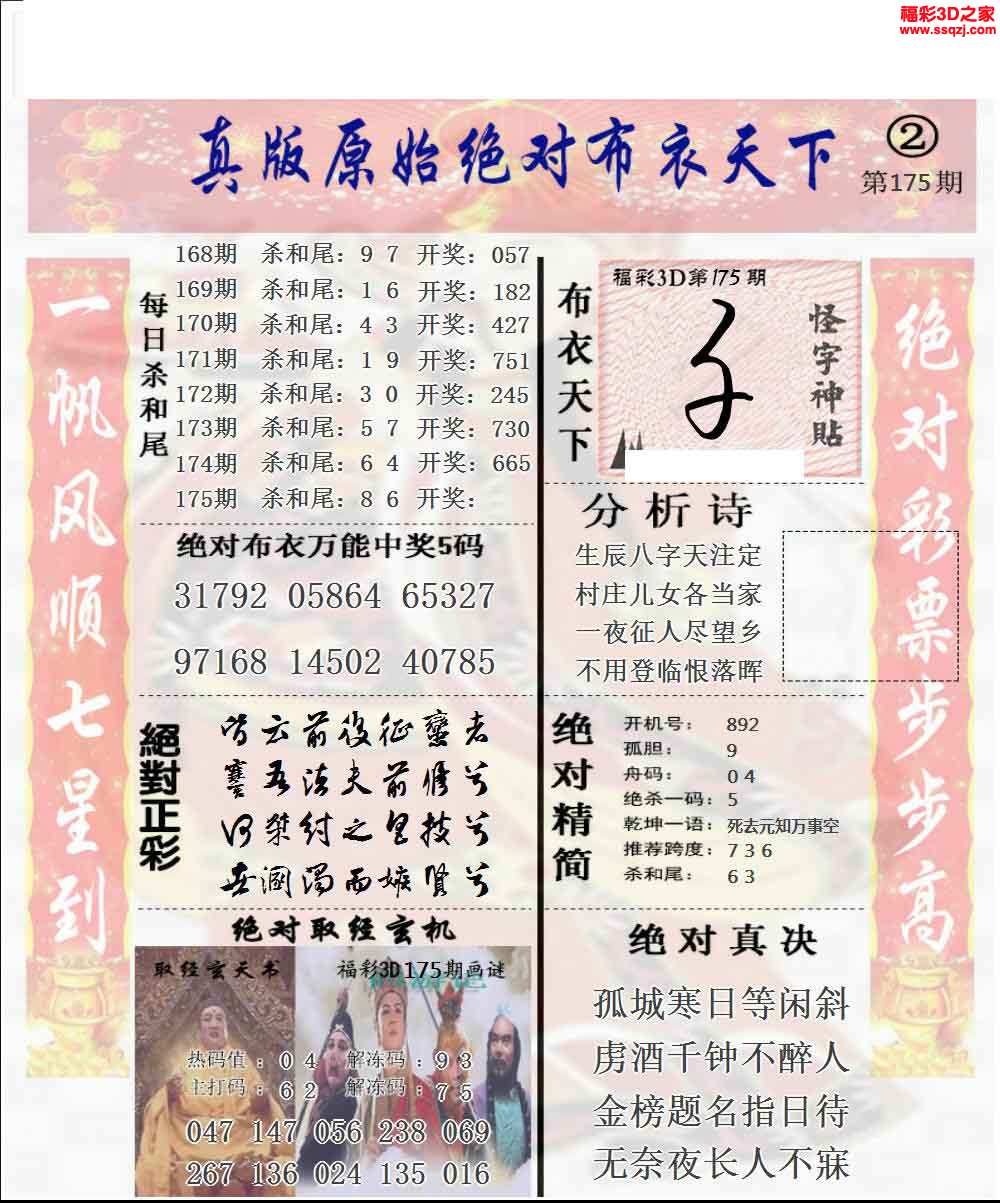 福彩3D之家
www.ssqzj.com
真版原始绝对布衣天下
②
第175期
一帆风顺七星到
每日杀和尾
168期 杀和尾：9 7 开奖：057
169期 杀和尾：1 6 开奖：182
170期 杀和尾：4 3 开奖：427
171期 杀和尾：1 9 开奖：751
172期 杀和尾：3 0 开奖：245
173期 杀和尾：5 7 开奖：730
174期 杀和尾：6 4 开奖：665
175期 杀和尾：8 6 开奖：
绝对布衣万能中奖5码
31792 05864 65327
97168 14502 40785
絕對正彩
皆云前後征蠻者
謇吾法夫前修兮
何桀纣之
世溷濁而嫉賢兮
绝对取经玄机
取经玄天书
福彩3D175期画谜
热码值：0 4 解冻码：9 3
主打码：6 2 解冻码：7 5
047 147 056 238 069
267 136 024 135 016
布衣天下
福彩3D第175期
子
怪字神贴
分析诗
生辰八字天注定
村庄儿女各当家
一夜征人尽望乡
不用登临恨落晖
绝对精简
开机号：892
孤胆：9
舟码：0 4
绝杀一码：5
乾坤一语：死去元知万事空
推荐跨度：7 3 6
杀和尾：6 3
绝对真决
孤城寒日等闲斜
虏酒千钟不醉人
金榜题名指日待
无奈夜长人不寐
绝对彩票步步高